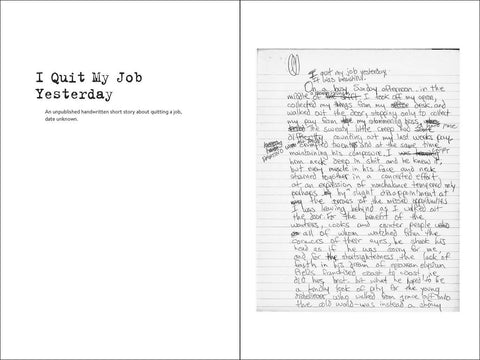 I Quit My Job
Yesterday
An unpublished handwritten short story about quitting a job,
date unknown.
I quit my job yesterday.
It was beautiful.
On a busy Sunday afternoon in the
middle of I took off my apron,
collected my things from my desk and
walked out the door, stopping only to collect
my pay from my stammering boss,
the sweaty little creep had
difficulty counting out my last weeks pay
at the same time
maintaining his composure. I
him neck deep in shit and he knew it,
but every muscle in his face and neck
strained together in a concerted effort
at an expression of nonchalance tempered
perhaps by slight disappointment at
the of the missed opportunities
I was leaving behind as I walked out
the door. For the benefit of the
waiters, cooks and counter people
all of whom watched from the
corners of their eyes, he shook his
head as if he was sorry for me
and for the shortsightedness the lack of
faith in his dream of epicurean elysian
fields franchised coast to coast,
did his best bit what he hoped to be
a fatherly look of pity for the young
who walked from grace out into
the cold world was instead a